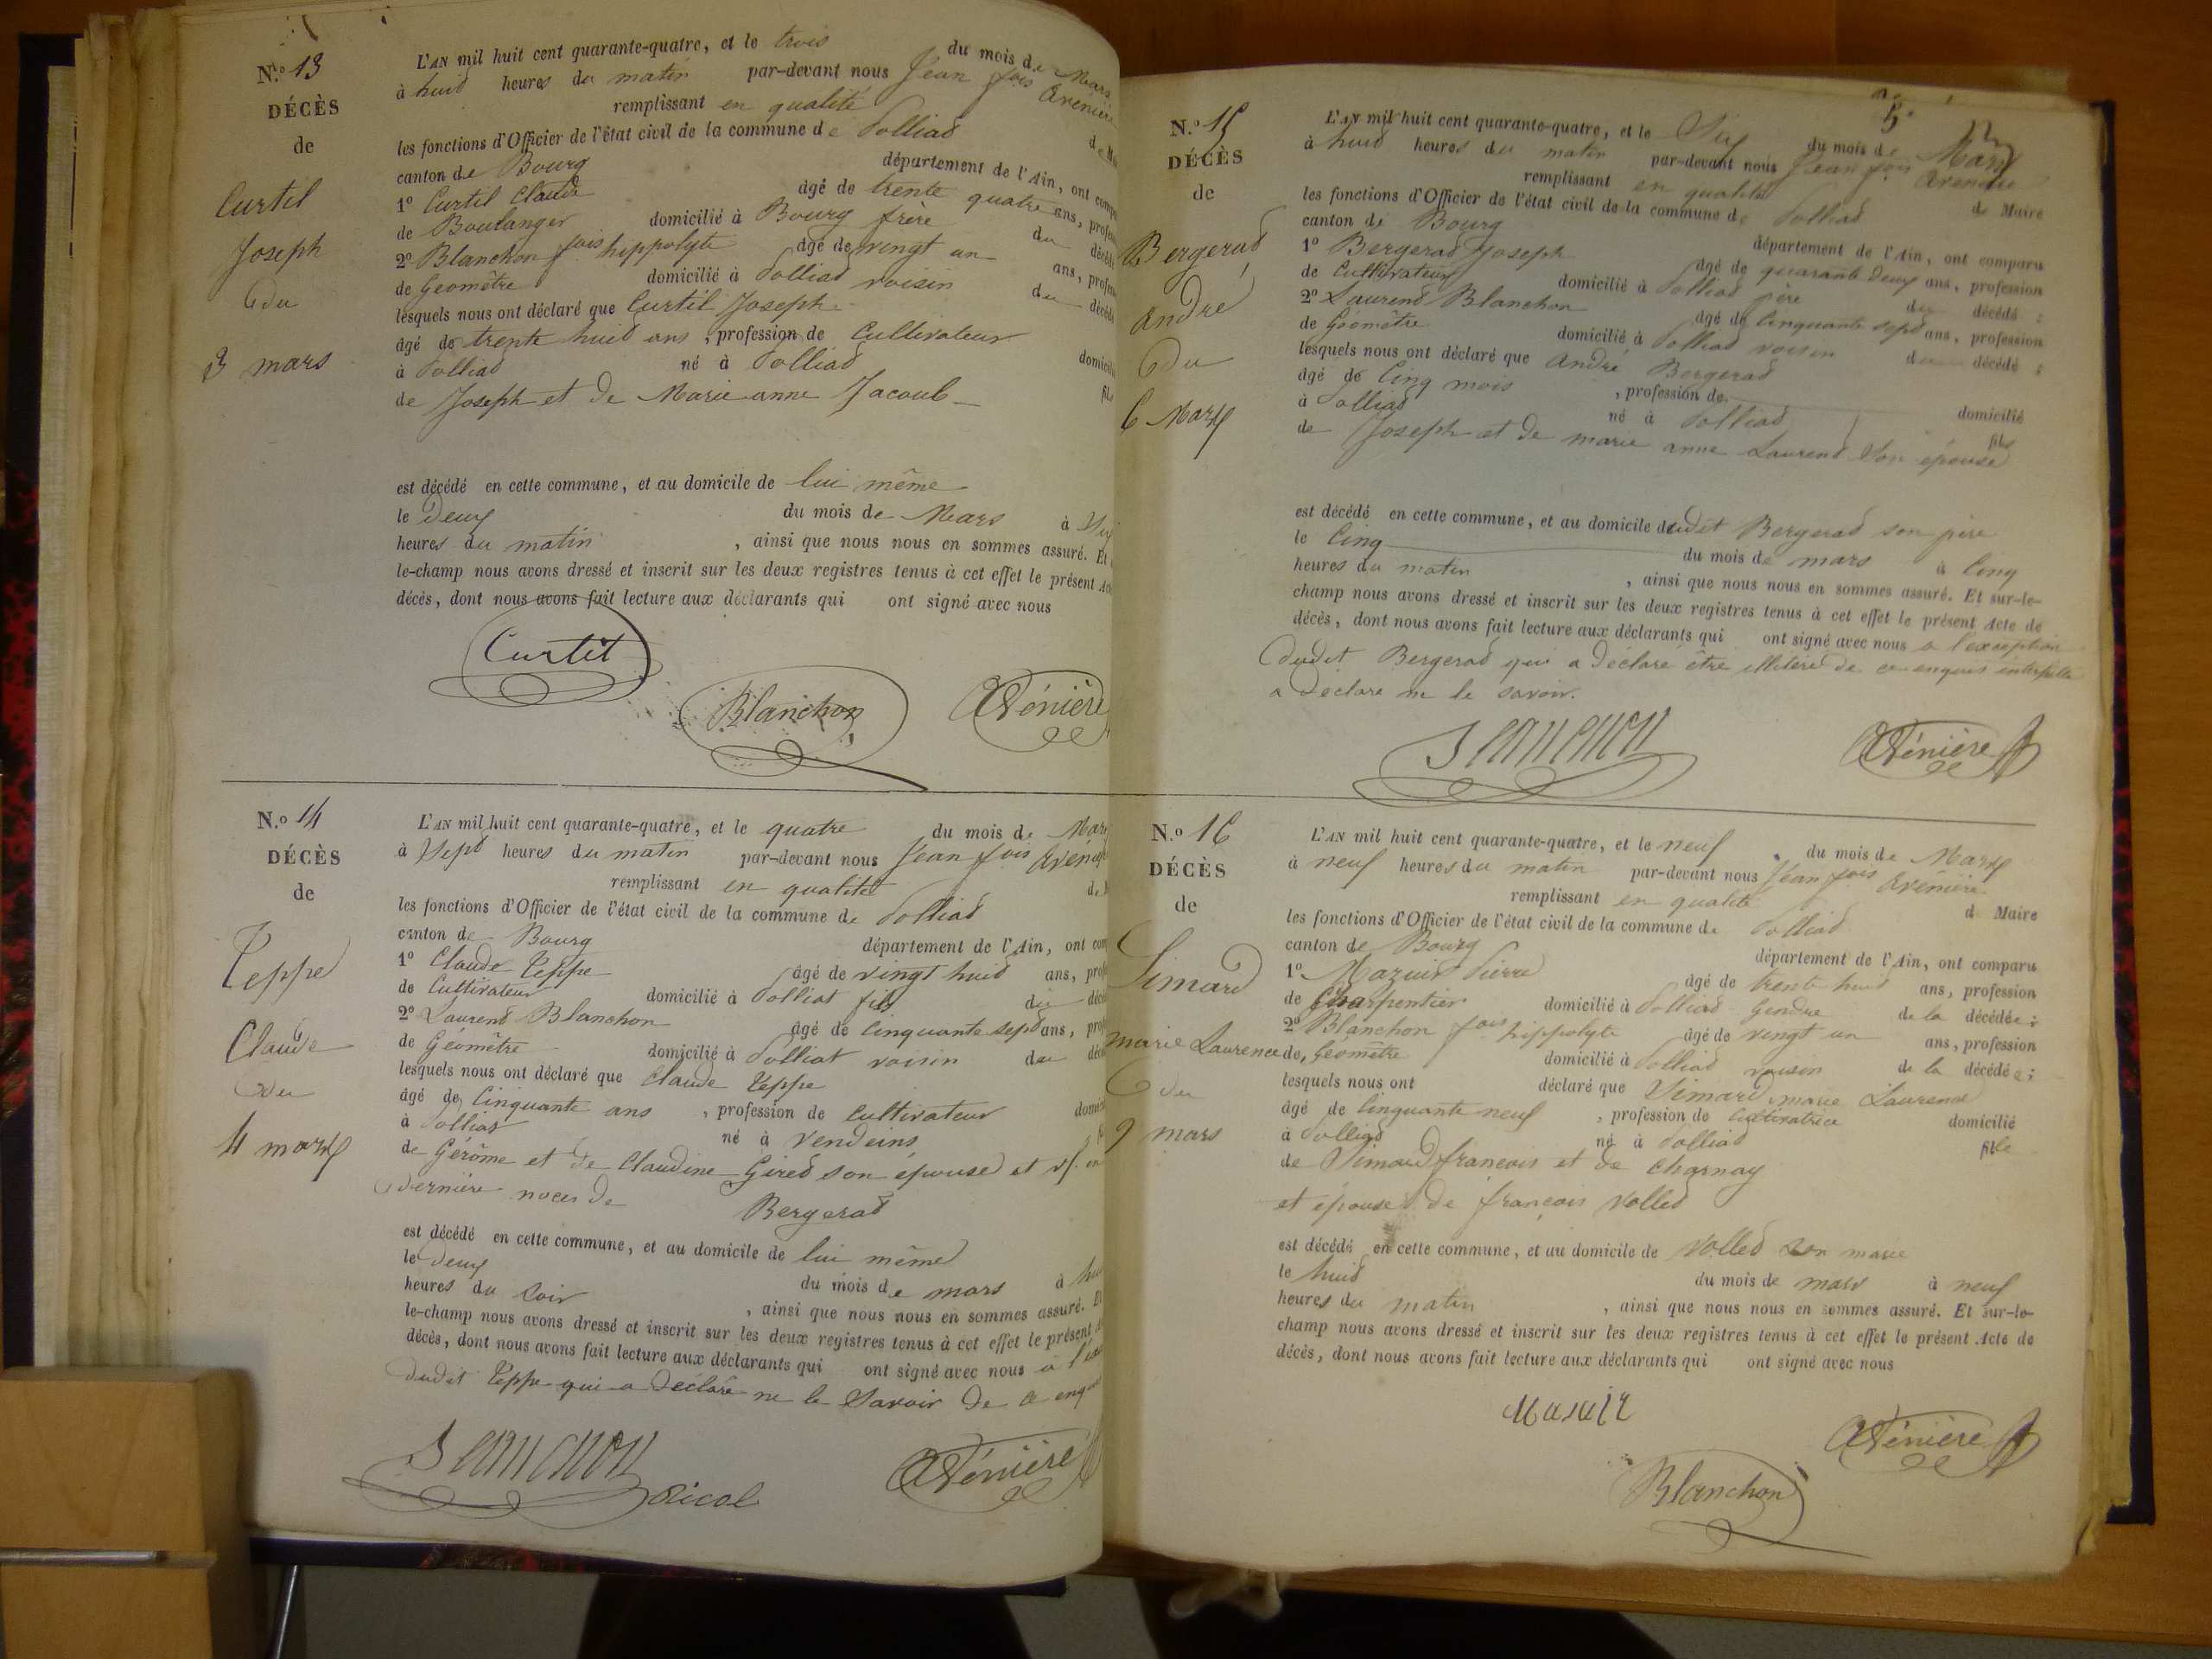 N.o 13
DÉCÈS
de
Curtil
Joseph
du
3 mars
L'AN mil huit cent quarante-quatre, et le trois du mois de Mars
à huit heures du matin par-devant nous Jean fois Avenière
remplissant en qualité de M
les fonctions d'Officier de l'état civil de la commune de Polliat
canton de Bourg département de l'Ain, ont comp
1o Curtil Claude âgé de trente quatre ans, profes
de Boulanger domicilié à Bourg frère du décédé
2o Blanchon fois hippolyte âgé de vingt un ans, profes
de Géomêtre domicilié à Polliat voisin du décédé
lesquels nous ont déclaré que Curtil Joseph
âgé de trente huit ans, profession de Cultivateur domicilié
à Polliat né à Polliat fils
de Joseph et de Marie anne Jacoub
est décédé en cette commune, et au domicile de lui même
le Deux du mois de Mars à Six
heures du matin, ainsi que nous nous en sommes assuré. Et
le-champ nous avons dressé et inscrit sur les deux registres tenus à cet effet le présent Acte
décès, dont nous avons fait lecture aux déclarants qui ont signé avec nous
Curtit
Blanchon
AVénière
N.o 14
DÉCÈS
de
Teppe
Claude
du
4 mars
L'AN mil huit cent quarante-quatre, et le quatre du mois de Mars
à Sept heures du matin par-devant nous Jean fois Avéniè
remplissant en qualité de M
les fonctions d'Officier de l'état civil de la commune de Polliat
canton de Bourg département de l'Ain, ont com
1o Claude Teppe âgé de vingt huit ans, prof
de Cultivateur domicilié à Polliat fils du décé
2o Laurent Blanchon âgé de Cinquante sept ans, prof
de Géomêtre domicilié à Polliat voisin du décé
lesquels nous ont déclaré que Claude Teppe
âgé de Cinquante ans, profession de Cultivateur domici
à Polliat né à Vendeins fi
de Gérôme et de Claudine Gired son épouse et vf. en
dernière noces de Bergerat
est décédé en cette commune, et au domicile de lui même
le Deux du mois de mars à hui
heures du soir, ainsi que nous nous en sommes assuré. Et
le-champ nous avons dressé et inscrit sur les deux registres tenus à cet effet le présent A
décès, dont nous avons fait lecture aux déclarants qui ont signé avec nous à l'ex
dudit Teppe qui a déclaré ne le Savoir de ce enq
Ricol
AVénière
N.o 15
DÉCÈS
de
Bergerat
André
du
6 Mars
L'AN mil huit cent quarante-quatre, et le Six du mois de Mars
à huit heures du matin par-devant nous Jean fois Avenière
remplissant en qualité de Maire
les fonctions d'Officier de l'état civil de la commune de Polliat
canton de Bourg département de l'Ain, ont comparu
1o Bergerat Joseph âgé de quarante deux ans, profession
de Cultivateur domicilié à Polliat père du décédé;
2o Laurent Blanchon âgé de Cinquante sept ans, profession
de Géomêtre domicilié à Polliat voisin du décédé;
lesquels nous ont déclaré que André Bergerat
âgé de Cinq mois, profession de domicilié
à Polliat né à Polliat fils
de Joseph et de marie anne Laurent Son épouse
est décédé en cette commune, et au domicile dudit Bergerat son père
le Cinq du mois de mars à Cinq
heures du matin, ainsi que nous nous en sommes assuré. Et sur-le-
champ nous avons dressé et inscrit sur les deux registres tenus à cet effet le présent Acte de
décès, dont nous avons fait lecture aux déclarants qui ont signé avec nous à l'exception
dudit Bergerat qui a déclaré être illitéré de ce enquis interpelle
a déclaré ne le savoir.
AVénière
N.o 16
DÉCÈS
de
Simard
marie Laurence
du
9 mars
L'AN mil huit cent quarante-quatre, et le neuf du mois de Mars
à neuf heures du matin par-devant nous Jean fois Avénière
remplissant en qualité de Maire
les fonctions d'Officier de l'état civil de la commune de Polliat
canton de Bourg département de l'Ain, ont comparu
1o Mazuir Pierre âgé de trente huit ans, profession
de Charpentier domicilié à Polliat Gendre de la décédée;
2o Blanchon fois hippolyte âgé de vingt un ans, profession
de Géomêtre domicilié à Polliat voisin de la décédée;
lesquels nous ont déclaré que Simard marie Laurence
âgé de Cinquante neuf, profession de Cultivatrice domicilié
à Polliat né à Polliat fille
de Simard francois et de Charnay
et épouse de françois Vollet
est décédé en cette commune, et au domicile de Vollet son marie
le huit du mois de mars à neuf
heures du matin, ainsi que nous nous en sommes assuré. Et sur-le-
champ nous avons dressé et inscrit sur les deux registres tenus à cet effet le présent Acte de
décès, dont nous avons fait lecture aux déclarants qui ont signé avec nous
Masuir
AVénière
Blanchon